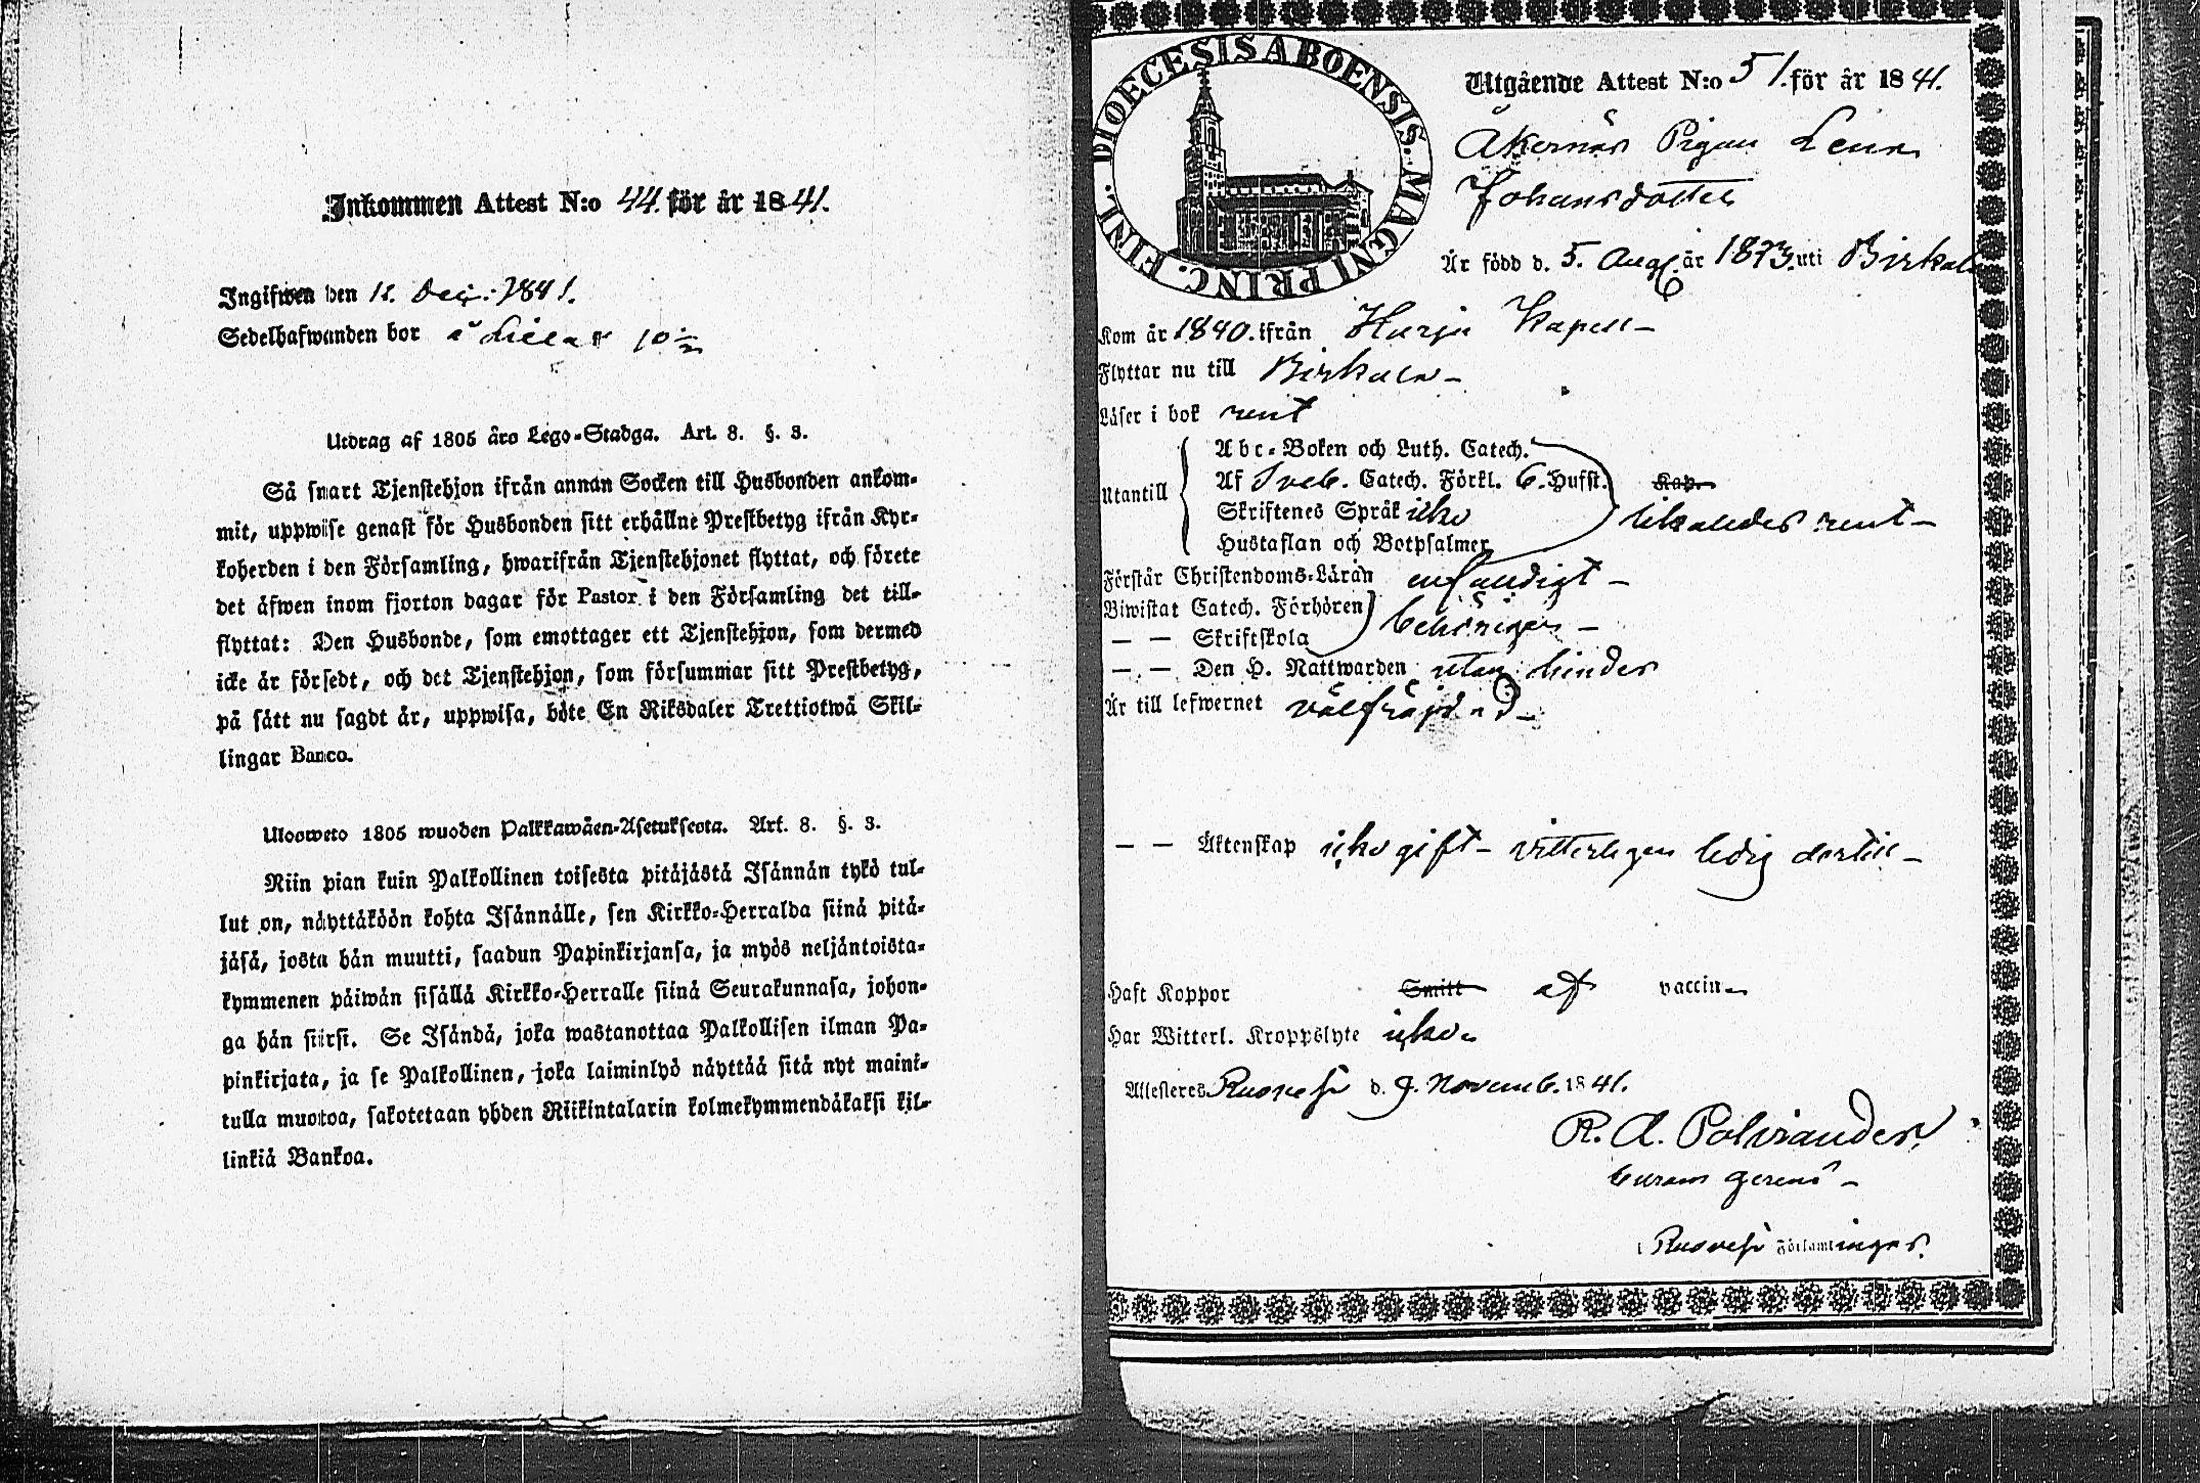 Inkommen Attest N:o 44. för år 1841.
Ingifwen den 11. Dec: 1841.
Sedelhafwanden bor å
Utdrag af 1805 åro Lego-Stadga. Art. 8. §. 3.
Så snart Tjenstehjon ifrån annan Socken till Husbonden ankom-
mit, uppwise genast för Husbonden sitt erhållne Prestbetyg ifrån Kyr-
koherden i den Församling, hwarifrån Tjenstehjonet flyttat, och förete
det äfwen inom fjorton dagar för Pastor i den Församling det till-
flyttat: Den Husbonde, som emottager ett Tjenstehjon, som dermed
icke är försedt, och det Tjenstehjon, som försummar sitt Prestbetyg,
på sätt nu sagdt är, uppwisa, böte En Riksdaler Trettiotwå Skil-
lingar Banco.
Uloosweto 1805 wuoden Palkkawäen-Asetuksesta. Art. 8. §. 3.
Niin pian kuin Palkollinen toisesta pitäjästä Isännän tykö tul-
lut on, näyttäköön kohta Isännälle, sen Kirkko-Herralda siinä pitä-
jäsä, josta hän muutti, saadun Papinkirjansa, ja myös neljäntoista-
kymmenen päiwän sisällä Kirkko-Herralle siinä Seurakunnasa, johon-
ga hän siirsi. Se Isändä, joka wastanottaa Palkollisen ilman Pa-
pinkirjata, ja se Palkollinen, joka laiminlyö näyttää sitä nyt maini-
tulla muotoa, sakotetaan yhden Riikintalarin kolmekymmendäkaksi kil-
linkiä Bankoa.
DIOECESIS ABOENSIS. MAGNI PRINC. FINL.
Utgående Attest N:o 51. för år 1841.
Åkernäs Pigan Lena
Johansdotter
Är född d. 5. Aug. år 1823. uti Birkala
Kom år 1840. ifrån Harju Kapell
Flyttar nu till Birkala
Läser i bok rent
Utantill
Abc-Boken och Luth. Catech.
Af Sveb. Catech. Förkl. 6. Hufst. Kap.
Skriftenes Språk icke
likaledes rent
Hustaflan och Botpsalmer
Förstår Christendoms-Läran enfaldigt
Biwistat Catech. Förhören
— — Skriftskola
behörigen
— — Den H. Nattwarden utan hinder
Är till lefwernet välfräjdad
— — Äktenskap icke gift — vitterligen ledig dertill
Haft Koppor Smitt af vaccin
Har Witterl. Kroppslyte icke
Attesteres Ruovesi d. 9. Novemb. 1841.
R. A. Polviander
Curam gerens
i Ruovesi Församlingar.